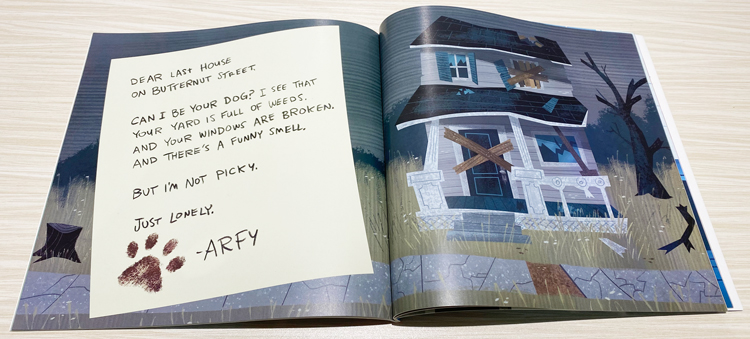 DEAR LAST HOUSE
ON BUTTERNUT STREET,
CAN I BE YOUR DOG? I SEE THAT
YOUR YARD IS FULL OF WEEDS.
AND YOUR WINDOWS ARE BROKEN.
AND THERE'S A FUNNY SMELL.
BUT I'M NOT PICKY.
JUST LONELY.
-ARFY